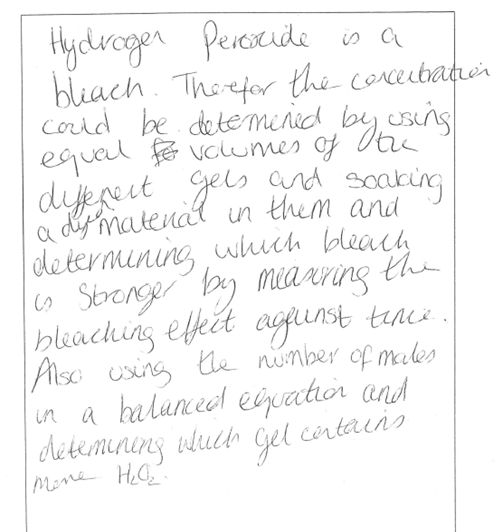 Hydrogen Peroxide is a
bleach. Therefor the concentration
could be determined by using
equal volumes of the
different gels and soaking
a dyed material in them and
determining which bleach
is stronger by measuring the
bleaching effect against time.
Also using the number of moles
in a balanced equation and
detemining which gel contains
more H₂O₂.